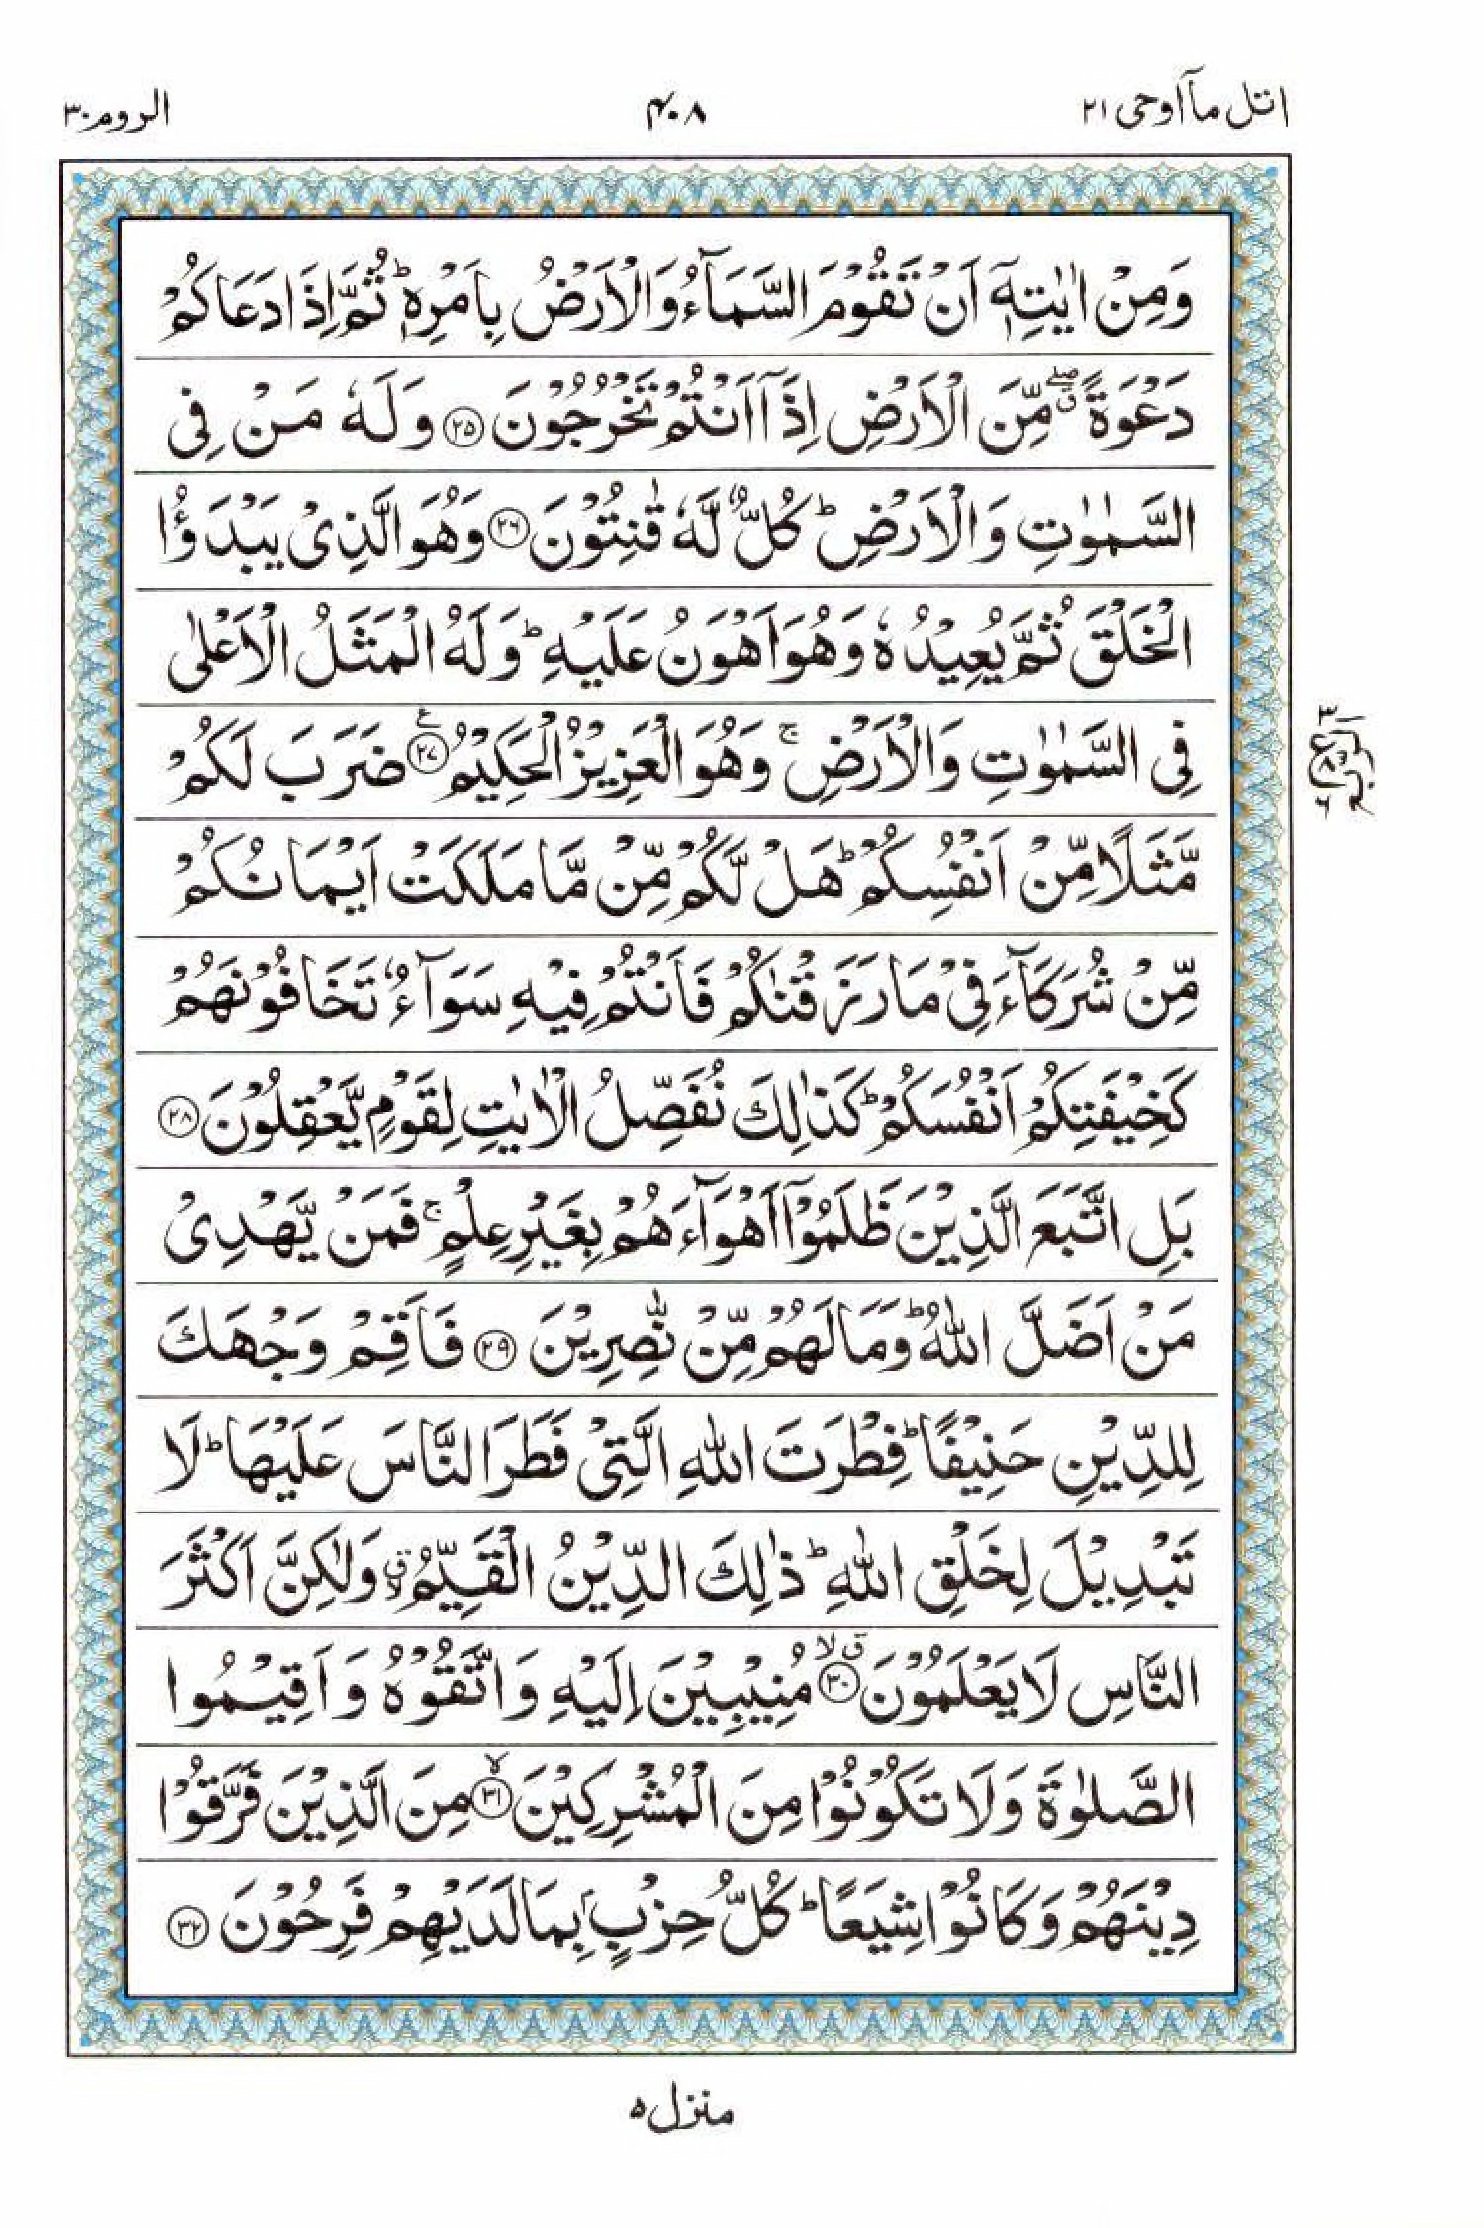 اتل مآ اوحی ٢١
۴۰۸
الروم ٣٠
وَمِنْ اٰيٰتِهٖۤ اَنْ تَقُوْمَ السَّمَآءُ وَالْاَرْضُ بِاَمْرِهٖ ؕ ثُمَّ اِذَا دَعَاكُمْ
دَعْوَةً ۖۗ مِّنَ الْاَرْضِ اِذَاۤ اَنْتُمْ تَخْرُجُوْنَ ﴿۲۵﴾ وَلَهٗ مَنْ فِى
السَّمٰوٰتِ وَالْاَرْضِ ؕ كُلٌّ لَّهٗ قٰنِتُوْنَ ﴿۲۶﴾ وَهُوَ الَّذِىْ يَبْدَؤُا
الْخَلْقَ ثُمَّ يُعِيْدُهٗ وَهُوَ اَهْوَنُ عَلَيْهِ ؕ وَلَهُ الْمَثَلُ الْاَعْلٰى
فِى السَّمٰوٰتِ وَالْاَرْضِ ۚ وَهُوَ الْعَزِيْزُ الْحَكِيْمُ ﴿۲۷﴾ ع ضَرَبَ لَكُمْ
مَّثَلًا مِّنْ اَنْفُسِكُمْ ؕ هَلْ لَّكُمْ مِّنْ مَّا مَلَكَتْ اَيْمَانُكُمْ
مِّنْ شُرَكَآءَ فِىْ مَا رَزَقْنٰكُمْ فَاَنْتُمْ فِيْهِ سَوَآءٌ تَخَافُوْنَهُمْ
كَخِيْفَتِكُمْ اَنْفُسَكُمْ ؕ كَذٰلِكَ نُفَصِّلُ الْاٰيٰتِ لِقَوْمٍ يَّعْقِلُوْنَ ﴿۲۸﴾
بَلِ اتَّبَعَ الَّذِيْنَ ظَلَمُوْۤا اَهْوَآءَهُمْ بِغَيْرِ عِلْمٍ ۚ فَمَنْ يَّهْدِىْ
مَنْ اَضَلَّ اللّٰهُ ؕ وَمَا لَهُمْ مِّنْ نّٰصِرِيْنَ ﴿۲۹﴾ فَاَقِمْ وَجْهَكَ
لِلدِّيْنِ حَنِيْفًا ؕ فِطْرَتَ اللّٰهِ الَّتِىْ فَطَرَ النَّاسَ عَلَيْهَا ؕ لَا
تَبْدِيْلَ لِخَلْقِ اللّٰهِ ؕ ذٰلِكَ الدِّيْنُ الْقَيِّمُ ۙۗ وَلٰكِنَّ اَكْثَرَ
النَّاسِ لَا يَعْلَمُوْنَ ﴿۳۰﴾ ۗۙ مُنِيْبِيْنَ اِلَيْهِ وَاتَّقُوْهُ وَاَقِيْمُوا
الصَّلٰوةَ وَلَا تَكُوْنُوْا مِنَ الْمُشْرِكِيْنَ ﴿۳۱﴾ ۙ مِنَ الَّذِيْنَ فَرَّقُوْا
دِيْنَهُمْ وَكَانُوْا شِيَعًا ؕ كُلُّ حِزْبٍۢ بِمَا لَدَيْهِمْ فَرِحُوْنَ ﴿۳۲﴾
منزل ٥